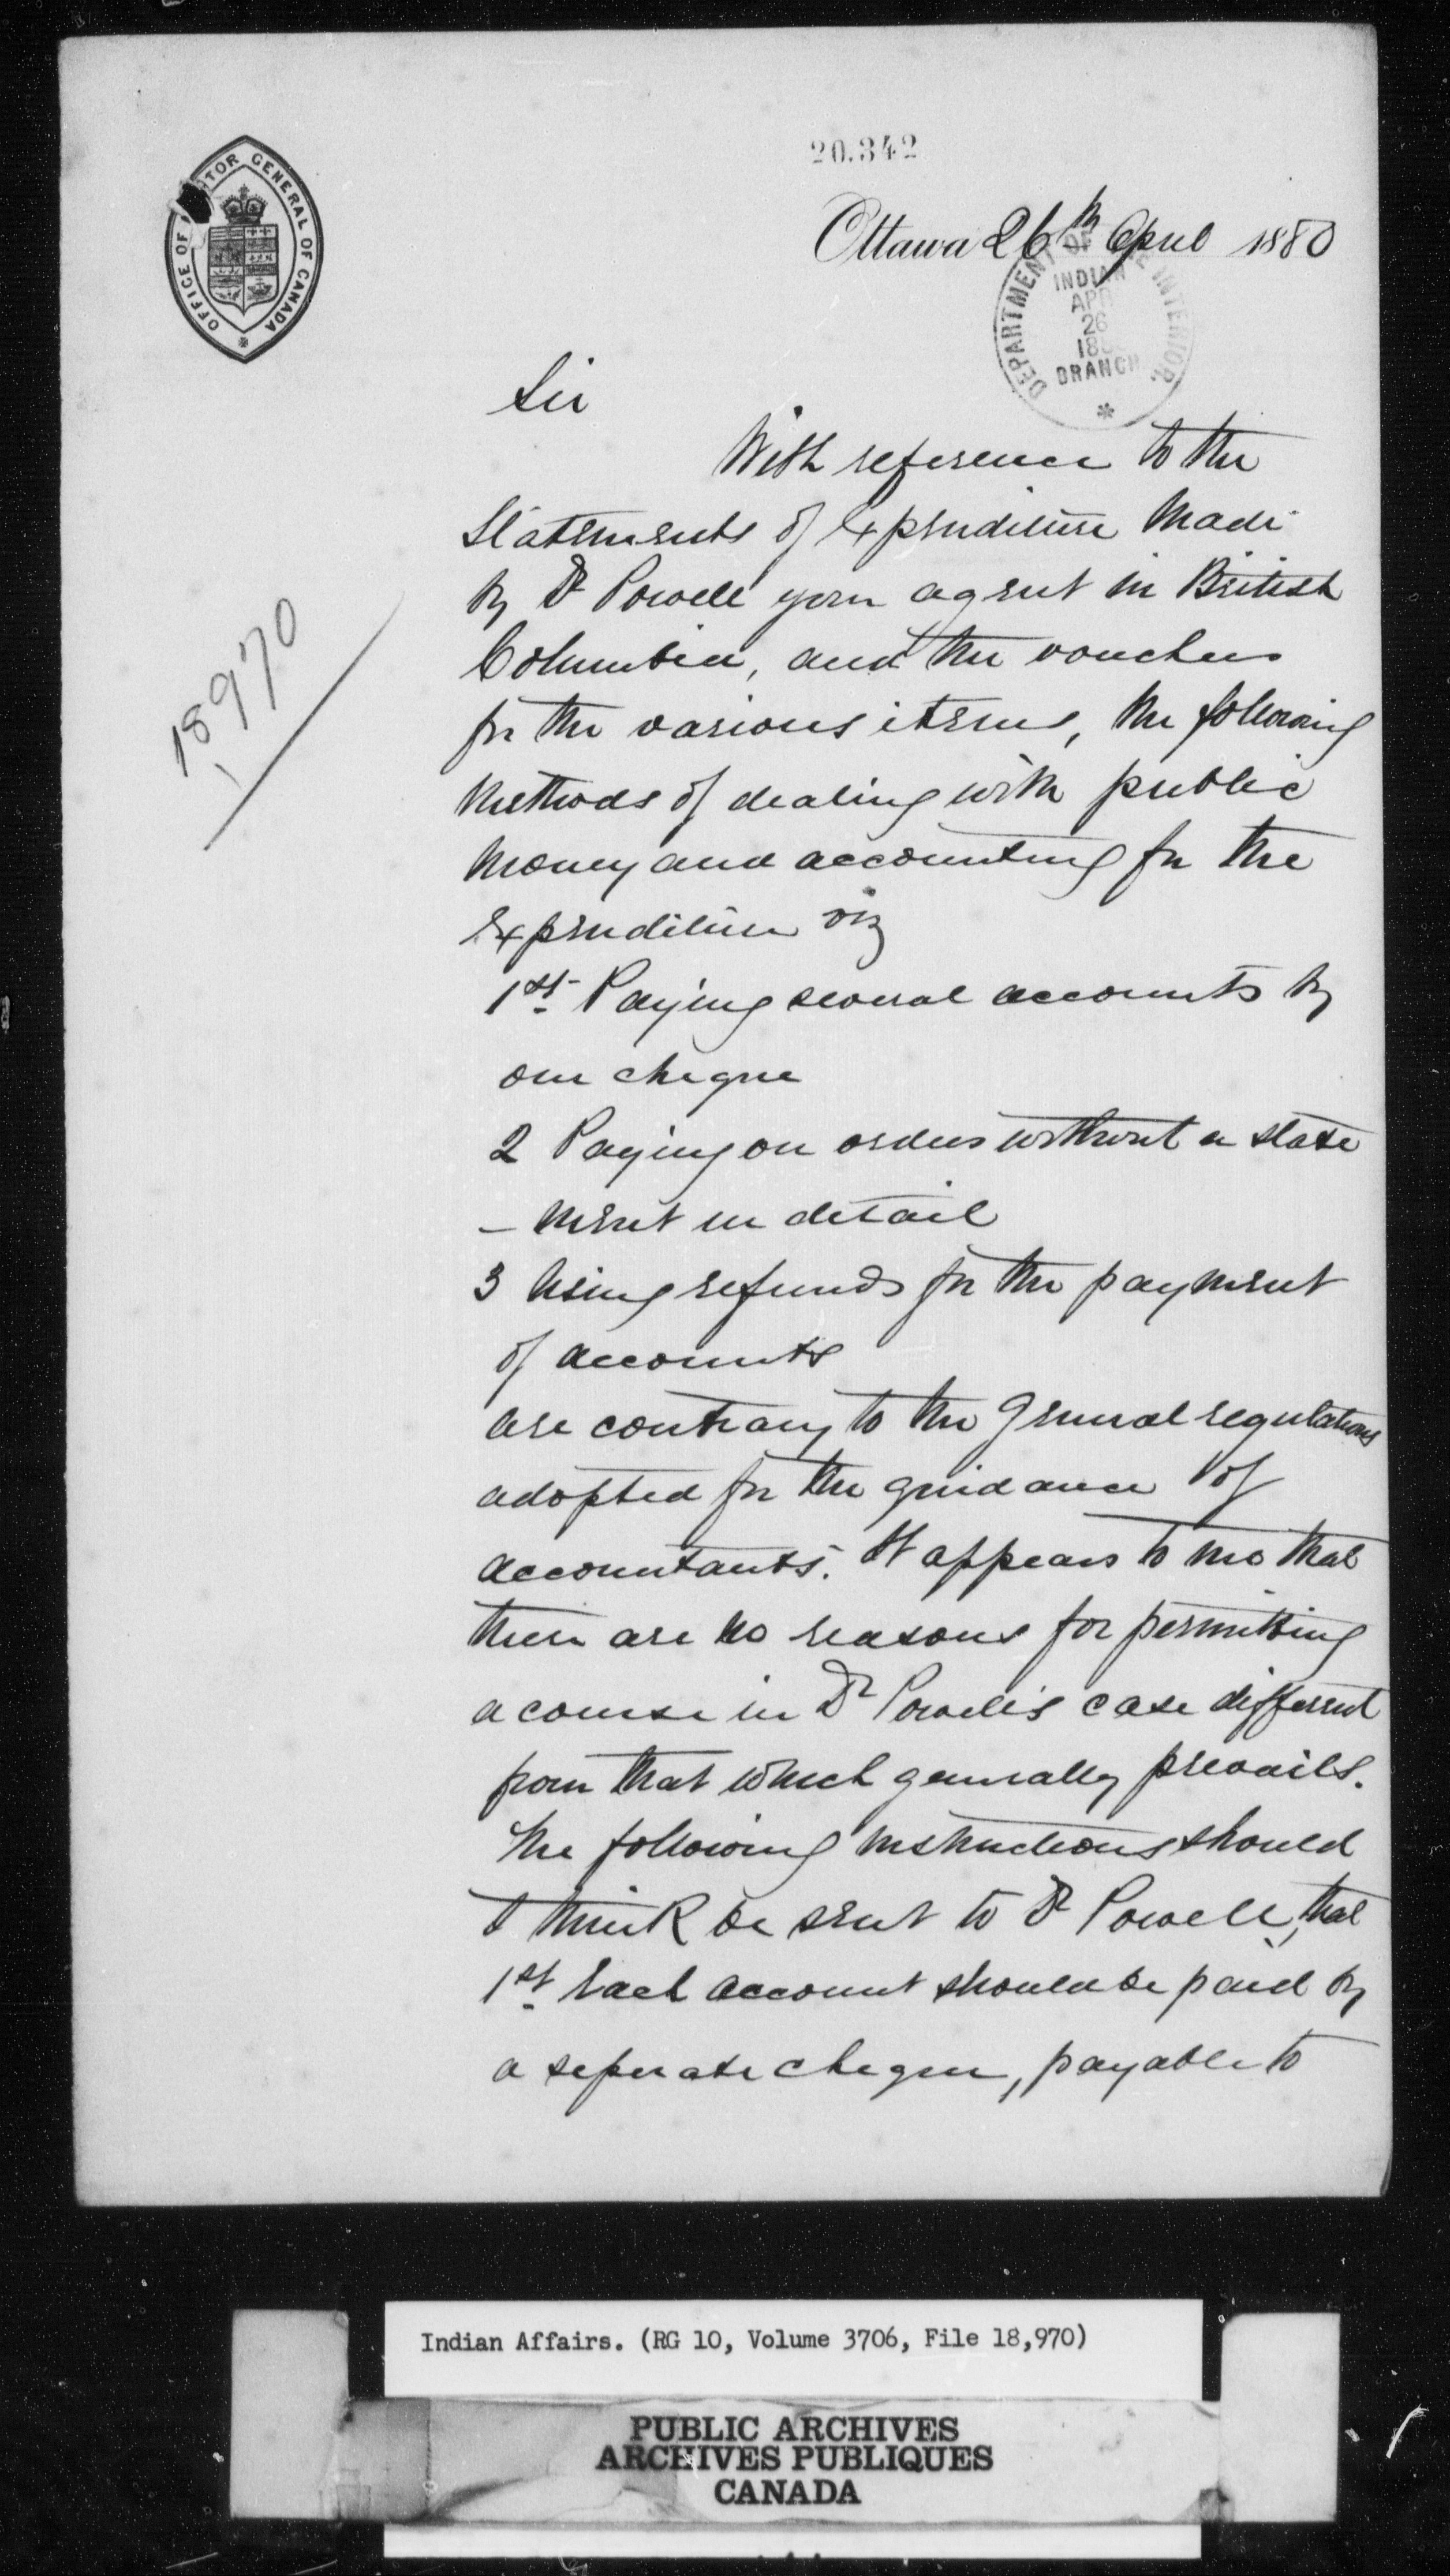 20.342
OFFICE OF AUDITOR GENERAL OF CANADA
Ottawa 26th April 1880
DEPARTMENT OF THE INTERIOR.
INDIAN
APR
26
188
BRANCH
Sir
With reference to the
Statements of Expenditure made
by Dr Powell your agent in British
Columbia, and the vouchers
for the various items, the following
methods of dealing with public
money and accounting for the
expenditure viz
1st Paying several accounts by
one cheque
2 Paying on orders without a state
- ment in detail
3 Using refunds for the payment
of accounts
are contrary to the General regulations
adopted for the guidance of
accountants. It appears to me that
there are no reasons for permitting
a course in Dr Powell's case different
from that which generally prevails.
The following instructions should
I think be sent to Dr Powell, that
1st Each account should be paid by
a seperate cheque, payable to
18970
Indian Affairs. (RG 10, Volume 3706, File 18,970)
PUBLIC ARCHIVES
ARCHIVES PUBLIQUES
CANADA